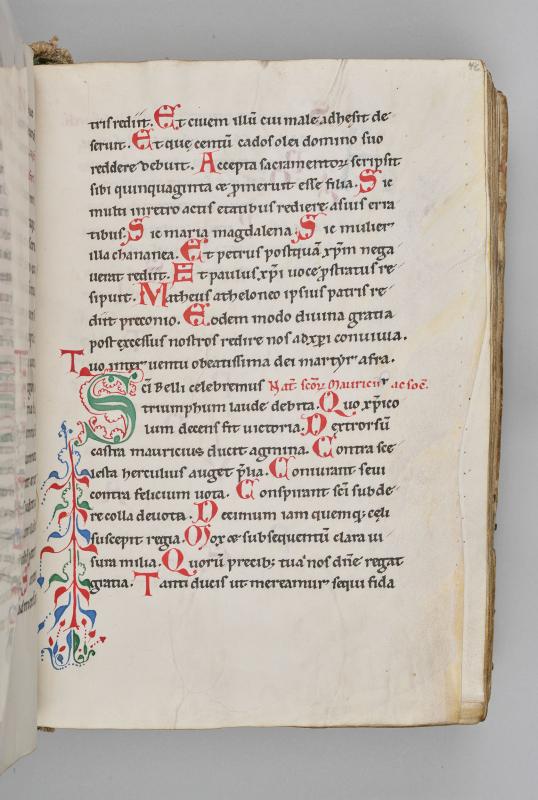 42
tris rediit. Et ciuem illū cui male adhesit de-
seruit. Et que centū cados olei domino suo
reddere debuit. Accepta sacramentoꝝ scripsit
sibi quinquaginta & ꝓmeruit esse filia. Sic
multi in retro actis etatibus rediere a suis erra
tibus. Sic maria magdalena. Sic mulier
illa chananea. Et petrus postquā xp̄m nega
uerat rediit. Et paulus xp̄i uoce ꝓstratus re-
sipuit. Matheus atheloneo ipsius patris re-
diit preconio. Eodem modo diuina gratia
post excessus nostros redire nos ad xp̄i conuiuia.
Tuo interuentu o beatissima dei martyr afra.
Sc̄i Belli celebremus Nat̄ scōꝝ Mauricii ac soc̄.
triumphum laude debita. Quo xp̄ico
lum decens fit uictoria. Dextrorsū
castra mauricius ducit agmina. Contra sce
lesta herculius auget p̄lia. Coniurant seui
contra felicium uota. Conspirant sc̄i subde-
re colla deuota. Decimum iam quemq; celi
suscepit regia. Mox & subsequentū clara ui
sura milia. Quorū precib; tua nos dn̄e regat
gratia. Tanti ducis ut mereamur sequi fida